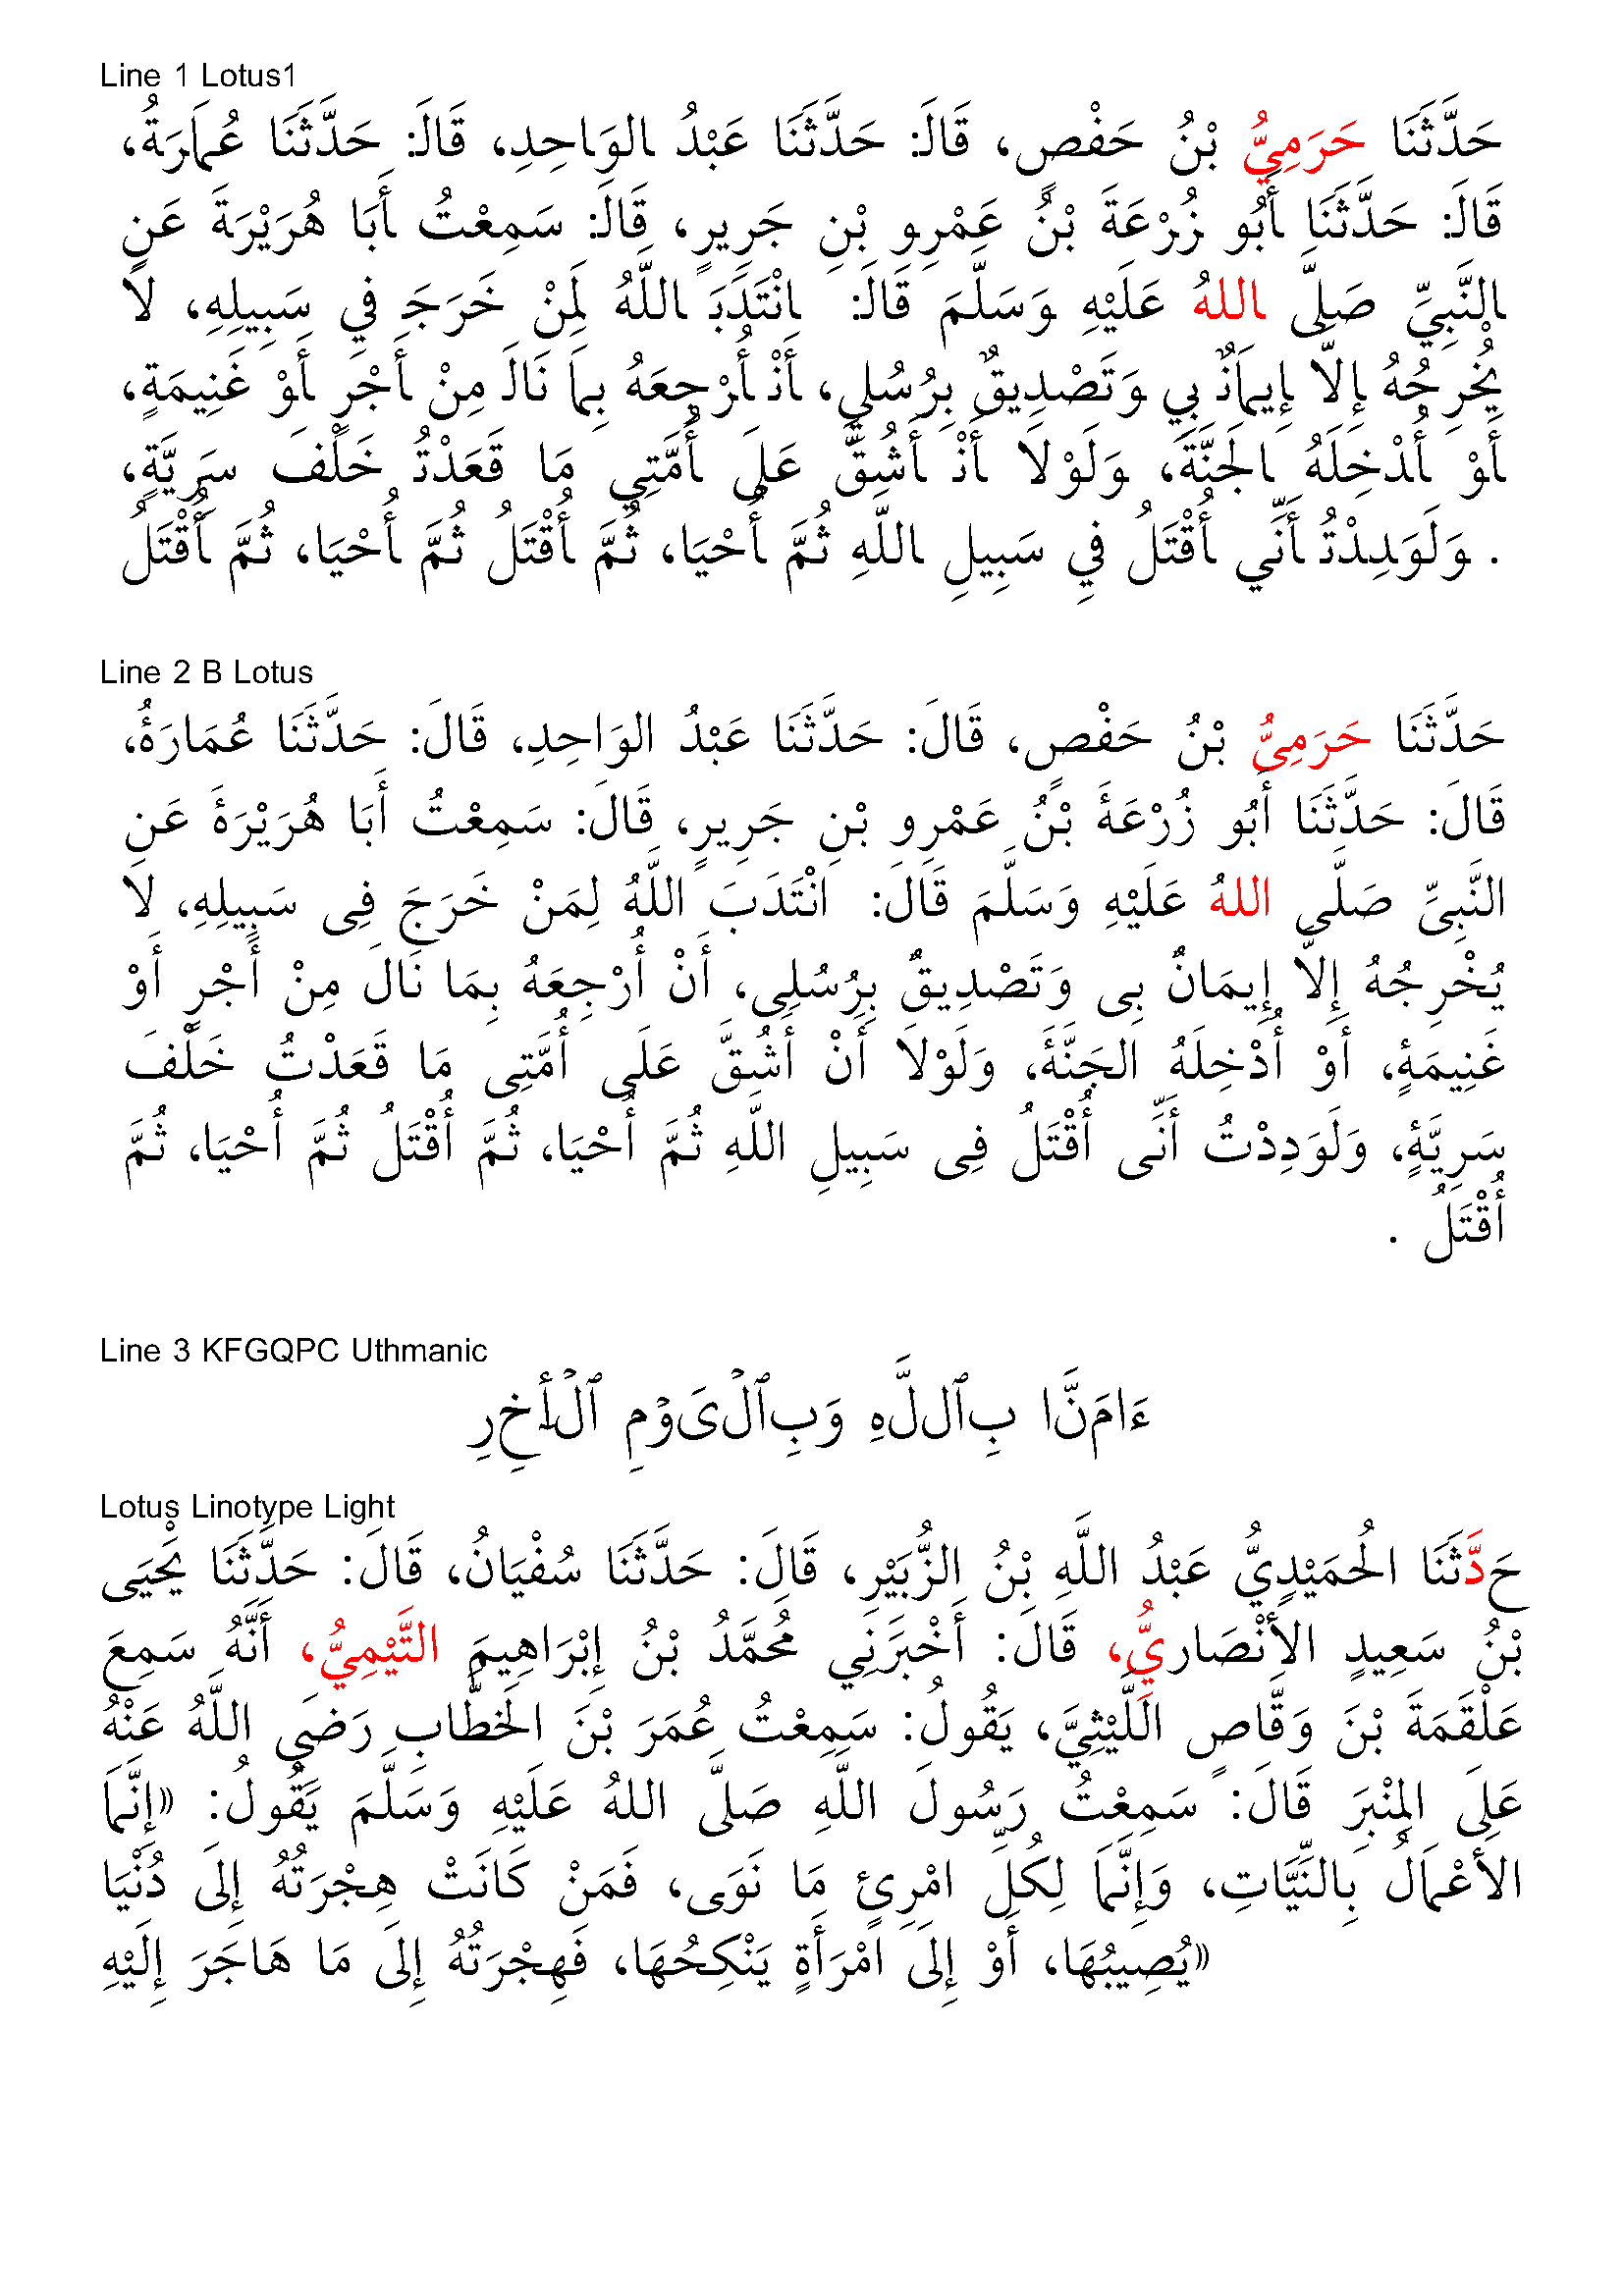 Line 1 Lotus1
حَدَّثَنَا حَرَمِيُّ بْنُ حَفْصٍ، قَالَ: حَدَّثَنَا عَبْدُ الوَاحِدِ، قَالَ: حَدَّثَنَا عُمَارَةُ،
قَالَ: حَدَّثَنَا أَبُو زُرْعَةَ بْنُ عَمْرِو بْنِ جَرِيرٍ، قَالَ: سَمِعْتُ أَبَا هُرَيْرَةَ عَنِ
النَّبِيِّ صَلَّى اللهُ عَلَيْهِ وَسَلَّمَ قَالَ: انْتَدَبَ اللَّهُ لِمَنْ خَرَجَ فِي سَبِيلِهِ، لَا
يُخْرِجُهُ إِلَّا إِيمَانٌ بِي وَتَصْدِيقٌ بِرُسُلِي، أَنْ أُرْجِعَهُ بِمَا نَالَ مِنْ أَجْرٍ أَوْ غَنِيمَةٍ،
أَوْ أُدْخِلَهُ الجَنَّةَ، وَلَوْلَا أَنْ أَشُقَّ عَلَى أُمَّتِي مَا قَعَدْتُ خَلْفَ سَرِيَّةٍ،
. وَلَوَدِدْتُ أَنِّي أُقْتَلُ فِي سَبِيلِ اللَّهِ ثُمَّ أُحْيَا، ثُمَّ أُقْتَلُ ثُمَّ أُحْيَا، ثُمَّ أُقْتَلُ
Line 2 B Lotus
حَدَّثَنَا حَرَمِىُّ بْنُ حَفْصٍ، قَالَ: حَدَّثَنَا عَبْدُ الوَاحِدِ، قَالَ: حَدَّثَنَا عُمَارَةُ،
قَالَ: حَدَّثَنَا أَبُو زُرْعَةَ بْنُ عَمْرِو بْنِ جَرِيرٍ، قَالَ: سَمِعْتُ أَبَا هُرَيْرَةَ عَنِ
النَّبِىِّ صَلَّى اللهُ عَلَيْهِ وَسَلَّمَ قَالَ: انْتَدَبَ اللَّهُ لِمَنْ خَرَجَ فِى سَبِيلِهِ، لَا
يُخْرِجُهُ إِلَّا إِيمَانٌ بِى وَتَصْدِيقٌ بِرُسُلِى، أَنْ أُرْجِعَهُ بِمَا نَالَ مِنْ أَجْرٍ أَوْ
غَنِيمَةٍ، أَوْ أُدْخِلَهُ الجَنَّةَ، وَلَوْلَا أَنْ أَشُقَّ عَلَى أُمَّتِى مَا قَعَدْتُ خَلْفَ
سَرِيَّةٍ، وَلَوَدِدْتُ أَنِّى أُقْتَلُ فِى سَبِيلِ اللَّهِ ثُمَّ أُحْيَا، ثُمَّ أُقْتَلُ ثُمَّ أُحْيَا، ثُمَّ
أُقْتَلُ .
Line 3 KFGQPC Uthmanic
ءَامَنَّا بِٱللَّهِ وَبِٱلۡيَوۡمِ ٱلۡأٓخِرِ
Lotus Linotype Light
حَدَّثَنَا الحُمَيْدِيُّ عَبْدُ اللَّهِ بْنُ الزُّبَيْرِ، قَالَ: حَدَّثَنَا سُفْيَانُ، قَالَ: حَدَّثَنَا يَحْيَى
بْنُ سَعِيدٍ الأَنْصَارِيُّ، قَالَ: أَخْبَرَنِي مُحَمَّدُ بْنُ إِبْرَاهِيمَ التَّيْمِيُّ، أَنَّهُ سَمِعَ
عَلْقَمَةَ بْنَ وَقَّاصٍ اللَّيْثِيَّ، يَقُولُ: سَمِعْتُ عُمَرَ بْنَ الخَطَّابِ رَضِيَ اللَّهُ عَنْهُ
عَلَى المِنْبَرِ قَالَ: سَمِعْتُ رَسُولَ اللَّهِ صَلَّى اللهُ عَلَيْهِ وَسَلَّمَ يَقُولُ: «إِنَّمَا
الأَعْمَالُ بِالنِّيَّاتِ، وَإِنَّمَا لِكُلِّ امْرِئٍ مَا نَوَى، فَمَنْ كَانَتْ هِجْرَتُهُ إِلَى دُنْيَا
»يُصِيبُهَا، أَوْ إِلَى امْرَأَةٍ يَنْكِحُهَا، فَهِجْرَتُهُ إِلَى مَا هَاجَرَ إِلَيْهِ